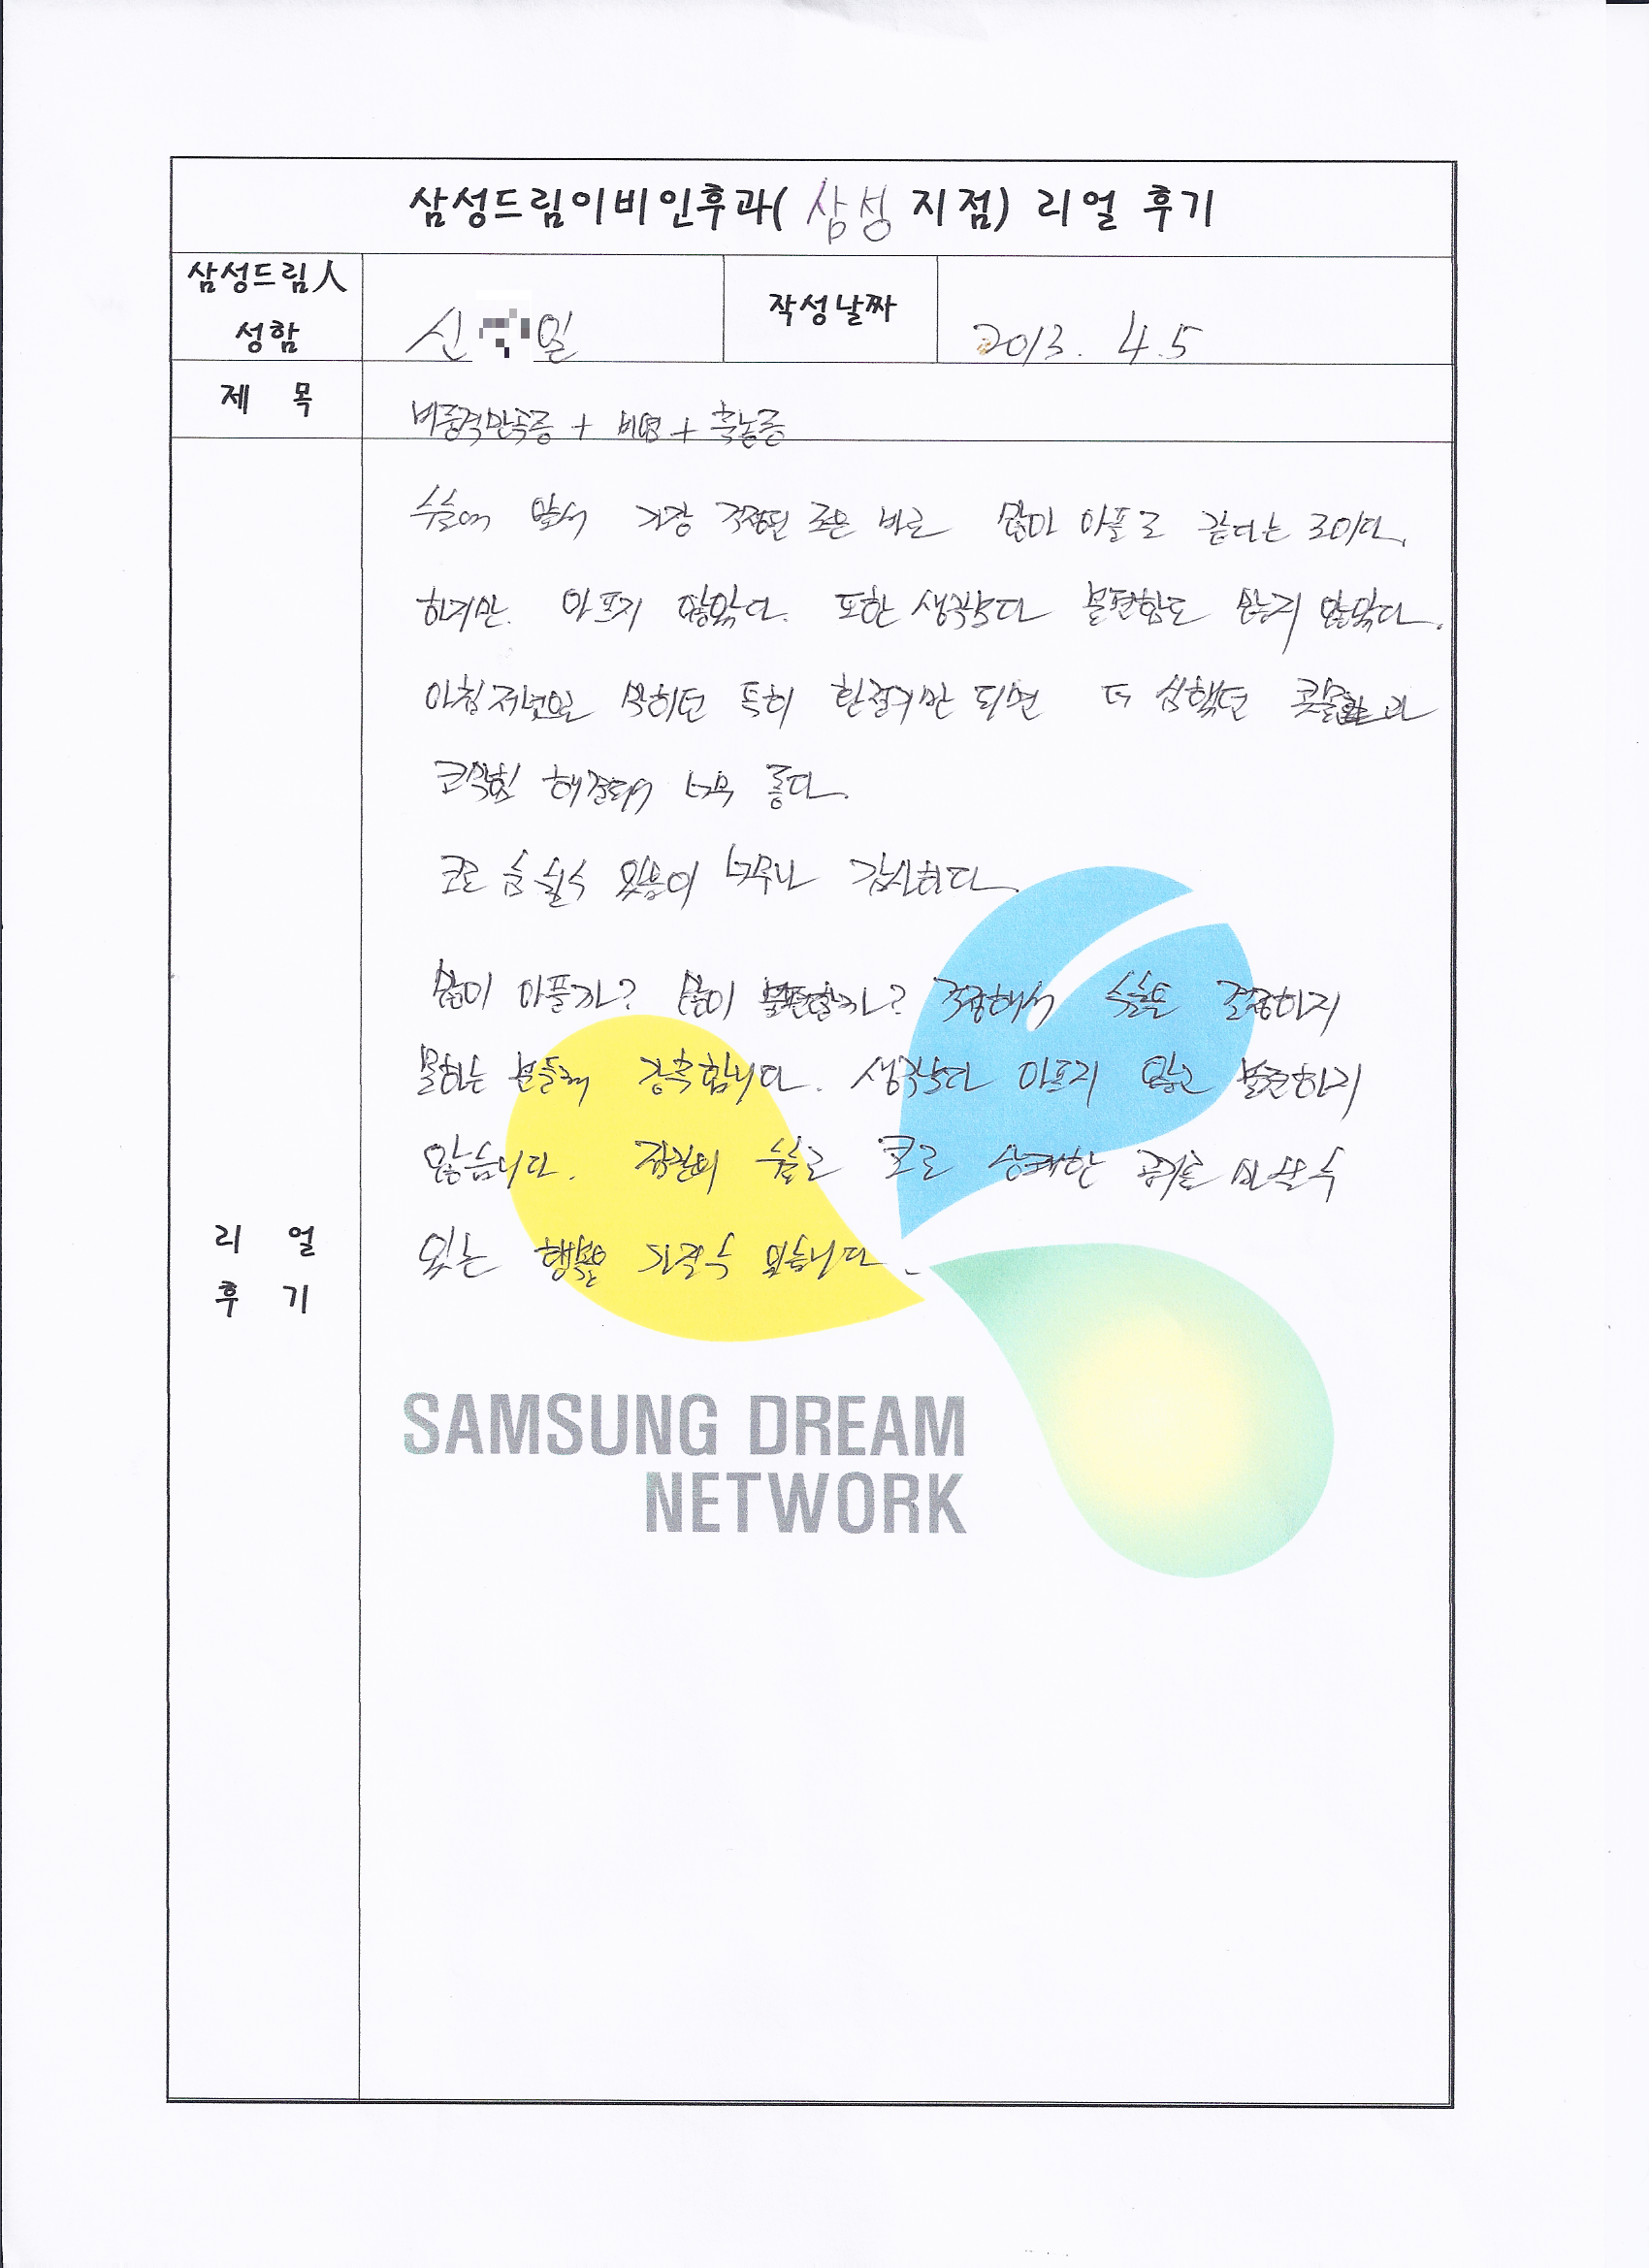 삼성드림이비인후과( 삼성 지점) 리얼 후기
삼성드림人
성함
신 일
작성날짜
2013. 4. 5
제 목
비중격만곡증 + 비염 + 축농증
수술에 앞서 가장 걱정된 것은 바로 많이 아플 것 같다는 것이다.
하지만. 아프지 않았다. 또한 생각보다 불편함도 많지 않았다.
아침저녁으로 막히던 특히 환절기만 되면 더 심했던 콧물과
코막힘 해결되어 너무 좋다.
코로 숨 쉴수 있음이 너무나 감사하다.
많이 아플까? 많이 불편할까? 걱정해서 수술을 결정하지
못하는 분들께 강추합니다. 생각보다 아프지 않고 불편하지
않습니다. 잠깐의 수술로 코로 상쾌한 공기를 마실 수
있는 행복을 가질수 있습니다.
리 얼
후 기
SAMSUNG DREAM
NETWORK